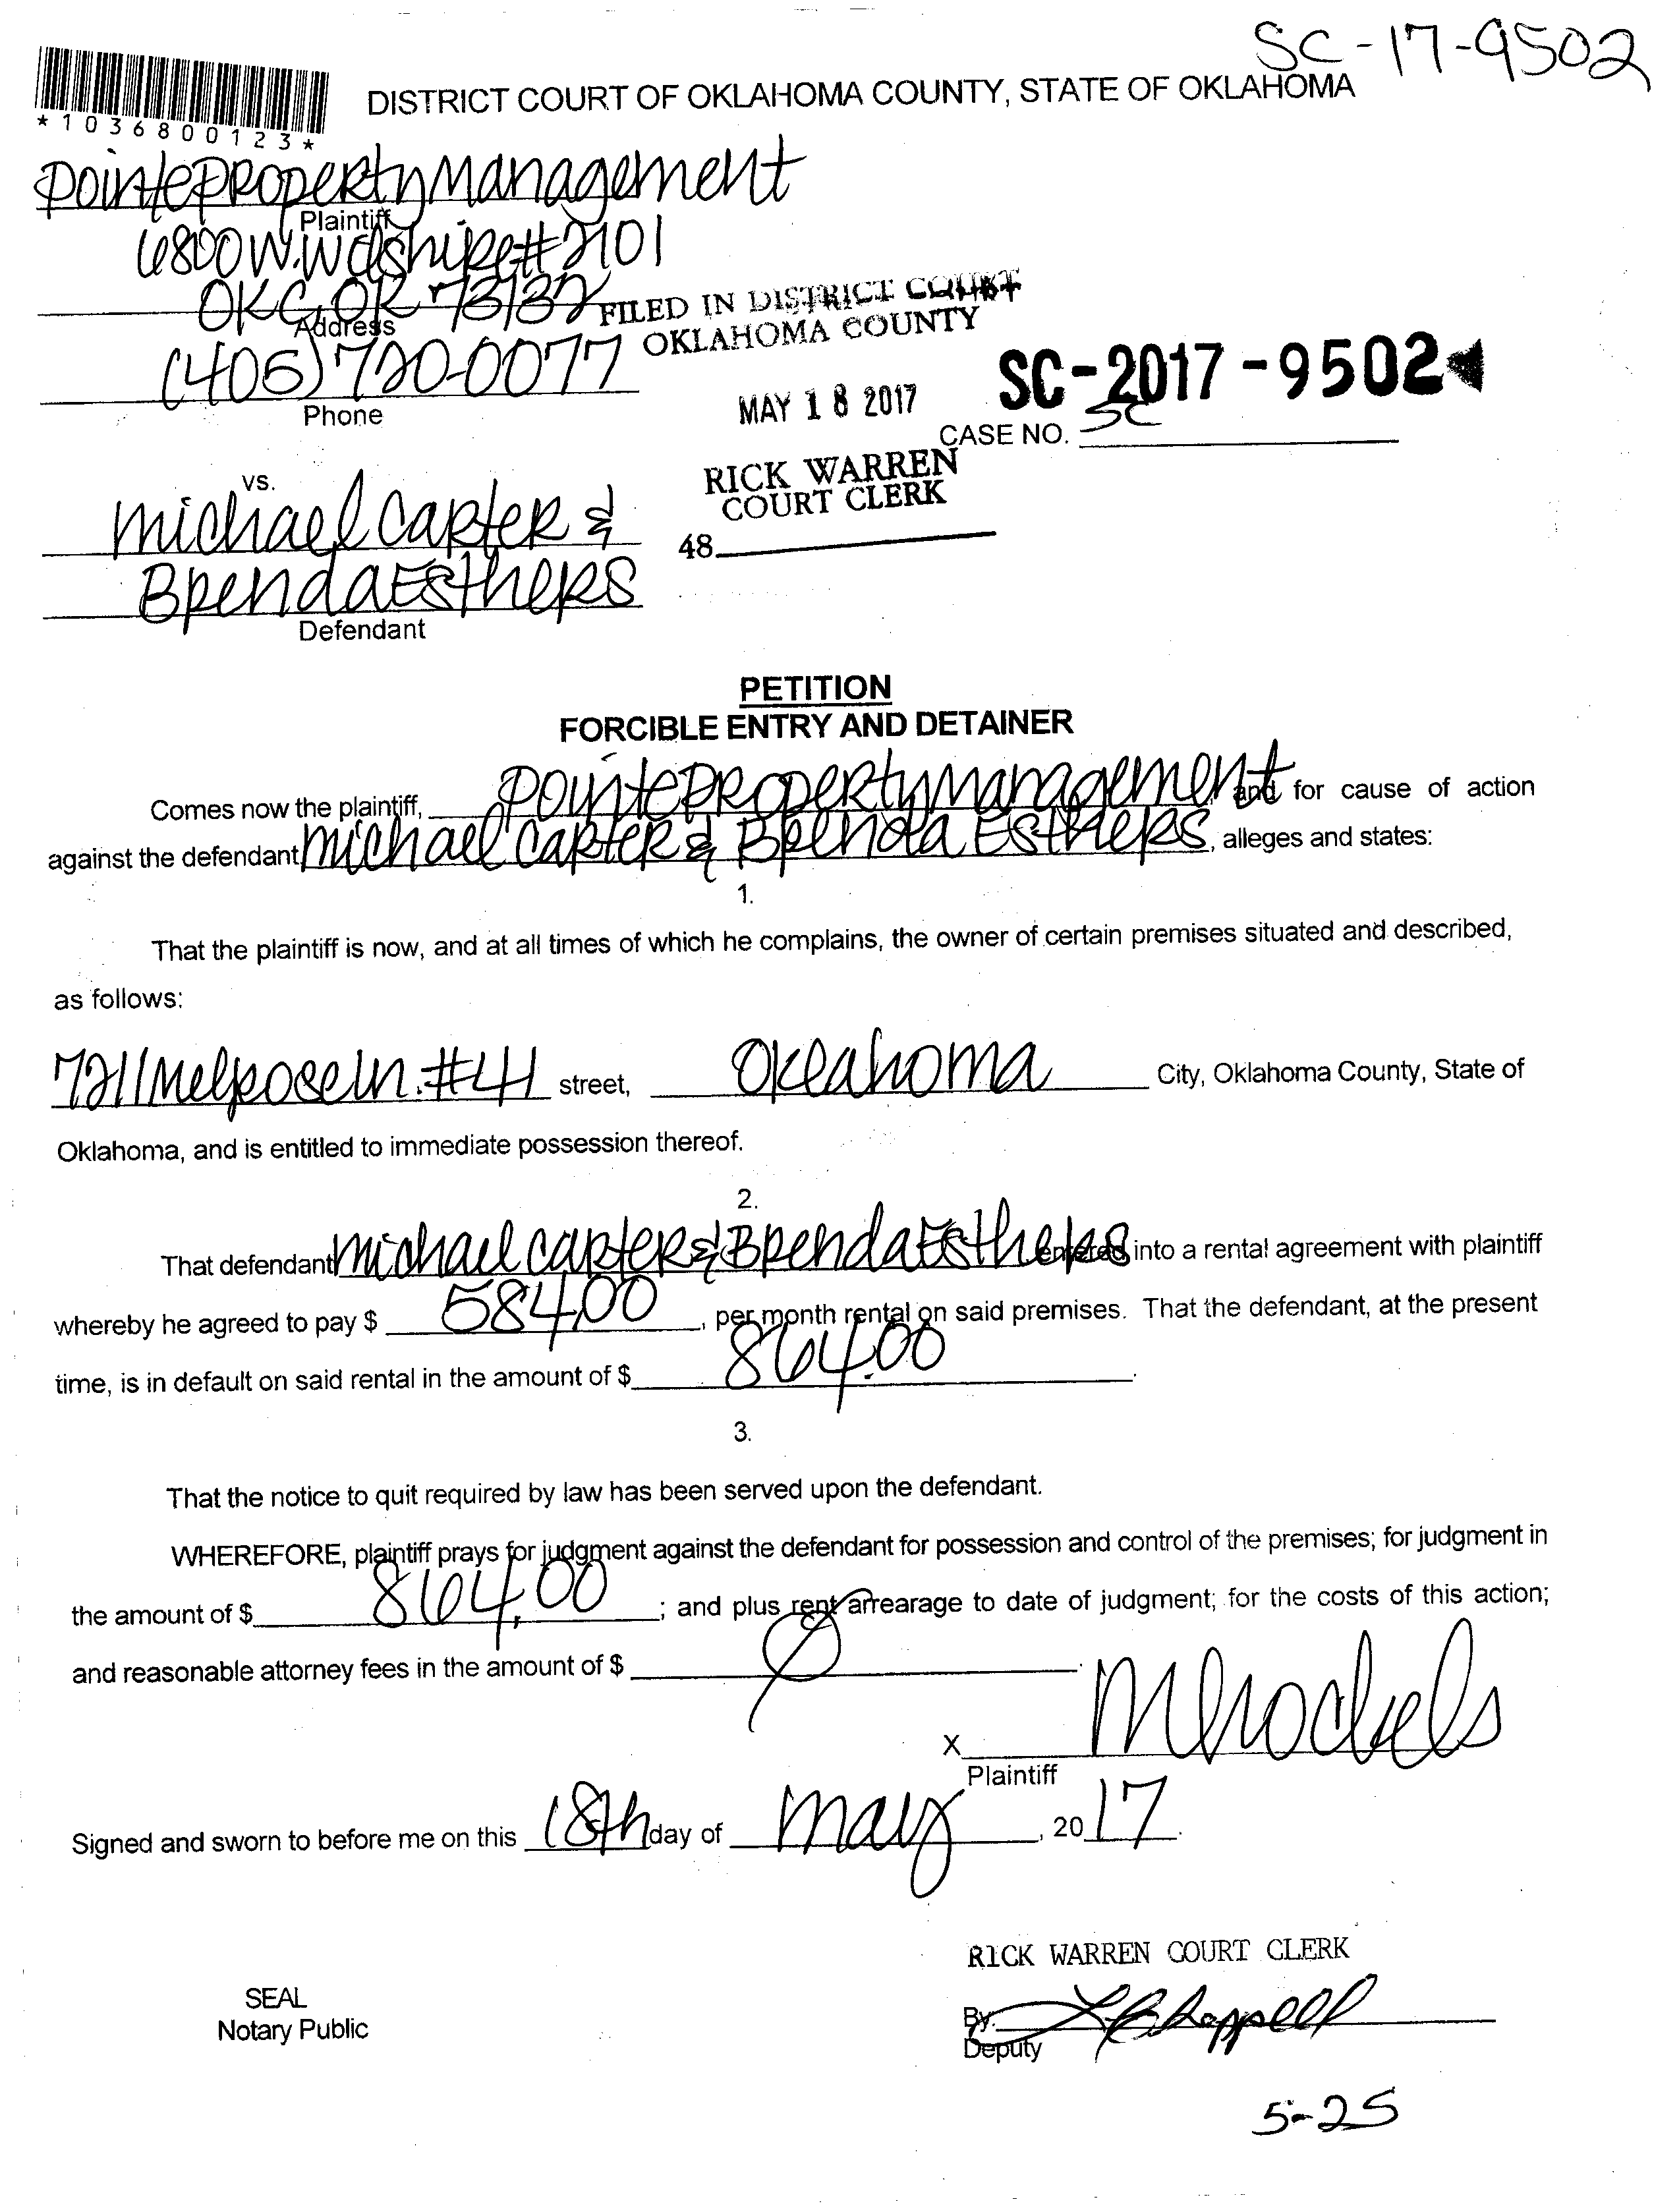 SC-17-9502
*1036800123*
DISTRICT COURT OF OKLAHOMA COUNTY, STATE OF OKLAHOMA
Pointe Property Management
Plaintiff
6800 W. Wilshire #2101
OKC, OK 73132
Address
(405) 720-0077
Phone
FILED IN DISTRICT COURT
OKLAHOMA COUNTY
MAY 18 2017
RICK WARREN
COURT CLERK
48
SC-2017-9502
CASE NO. SC
vs.
Michael Carter &
Brenda Esthers
Defendant
PETITION
FORCIBLE ENTRY AND DETAINER
Comes now the plaintiff, Pointe Property Management and for cause of action
against the defendant Michael Carter & Brenda Esthers, alleges and states:
1.
That the plaintiff is now, and at all times of which he complains, the owner of certain premises situated and described,
as follows:
7211 Melrose Ln. #41 street, Oklahoma City, Oklahoma County, State of
Oklahoma, and is entitled to immediate possession thereof.
2.
That defendant Michael Carter & Brenda Esthers entered into a rental agreement with plaintiff
whereby he agreed to pay $ 584.00, per month rental on said premises. That the defendant, at the present
time, is in default on said rental in the amount of $ 864.00.
3.
That the notice to quit required by law has been served upon the defendant.
WHEREFORE, plaintiff prays for judgment against the defendant for possession and control of the premises; for judgment in
the amount of $ 864.00; and plus rent arrearage to date of judgment; for the costs of this action;
and reasonable attorney fees in the amount of $ 0.
X
Plaintiff
Signed and sworn to before me on this 18th day of May, 2017.
RICK WARREN COURT CLERK
SEAL
Notary Public
By:
Deputy
5-25